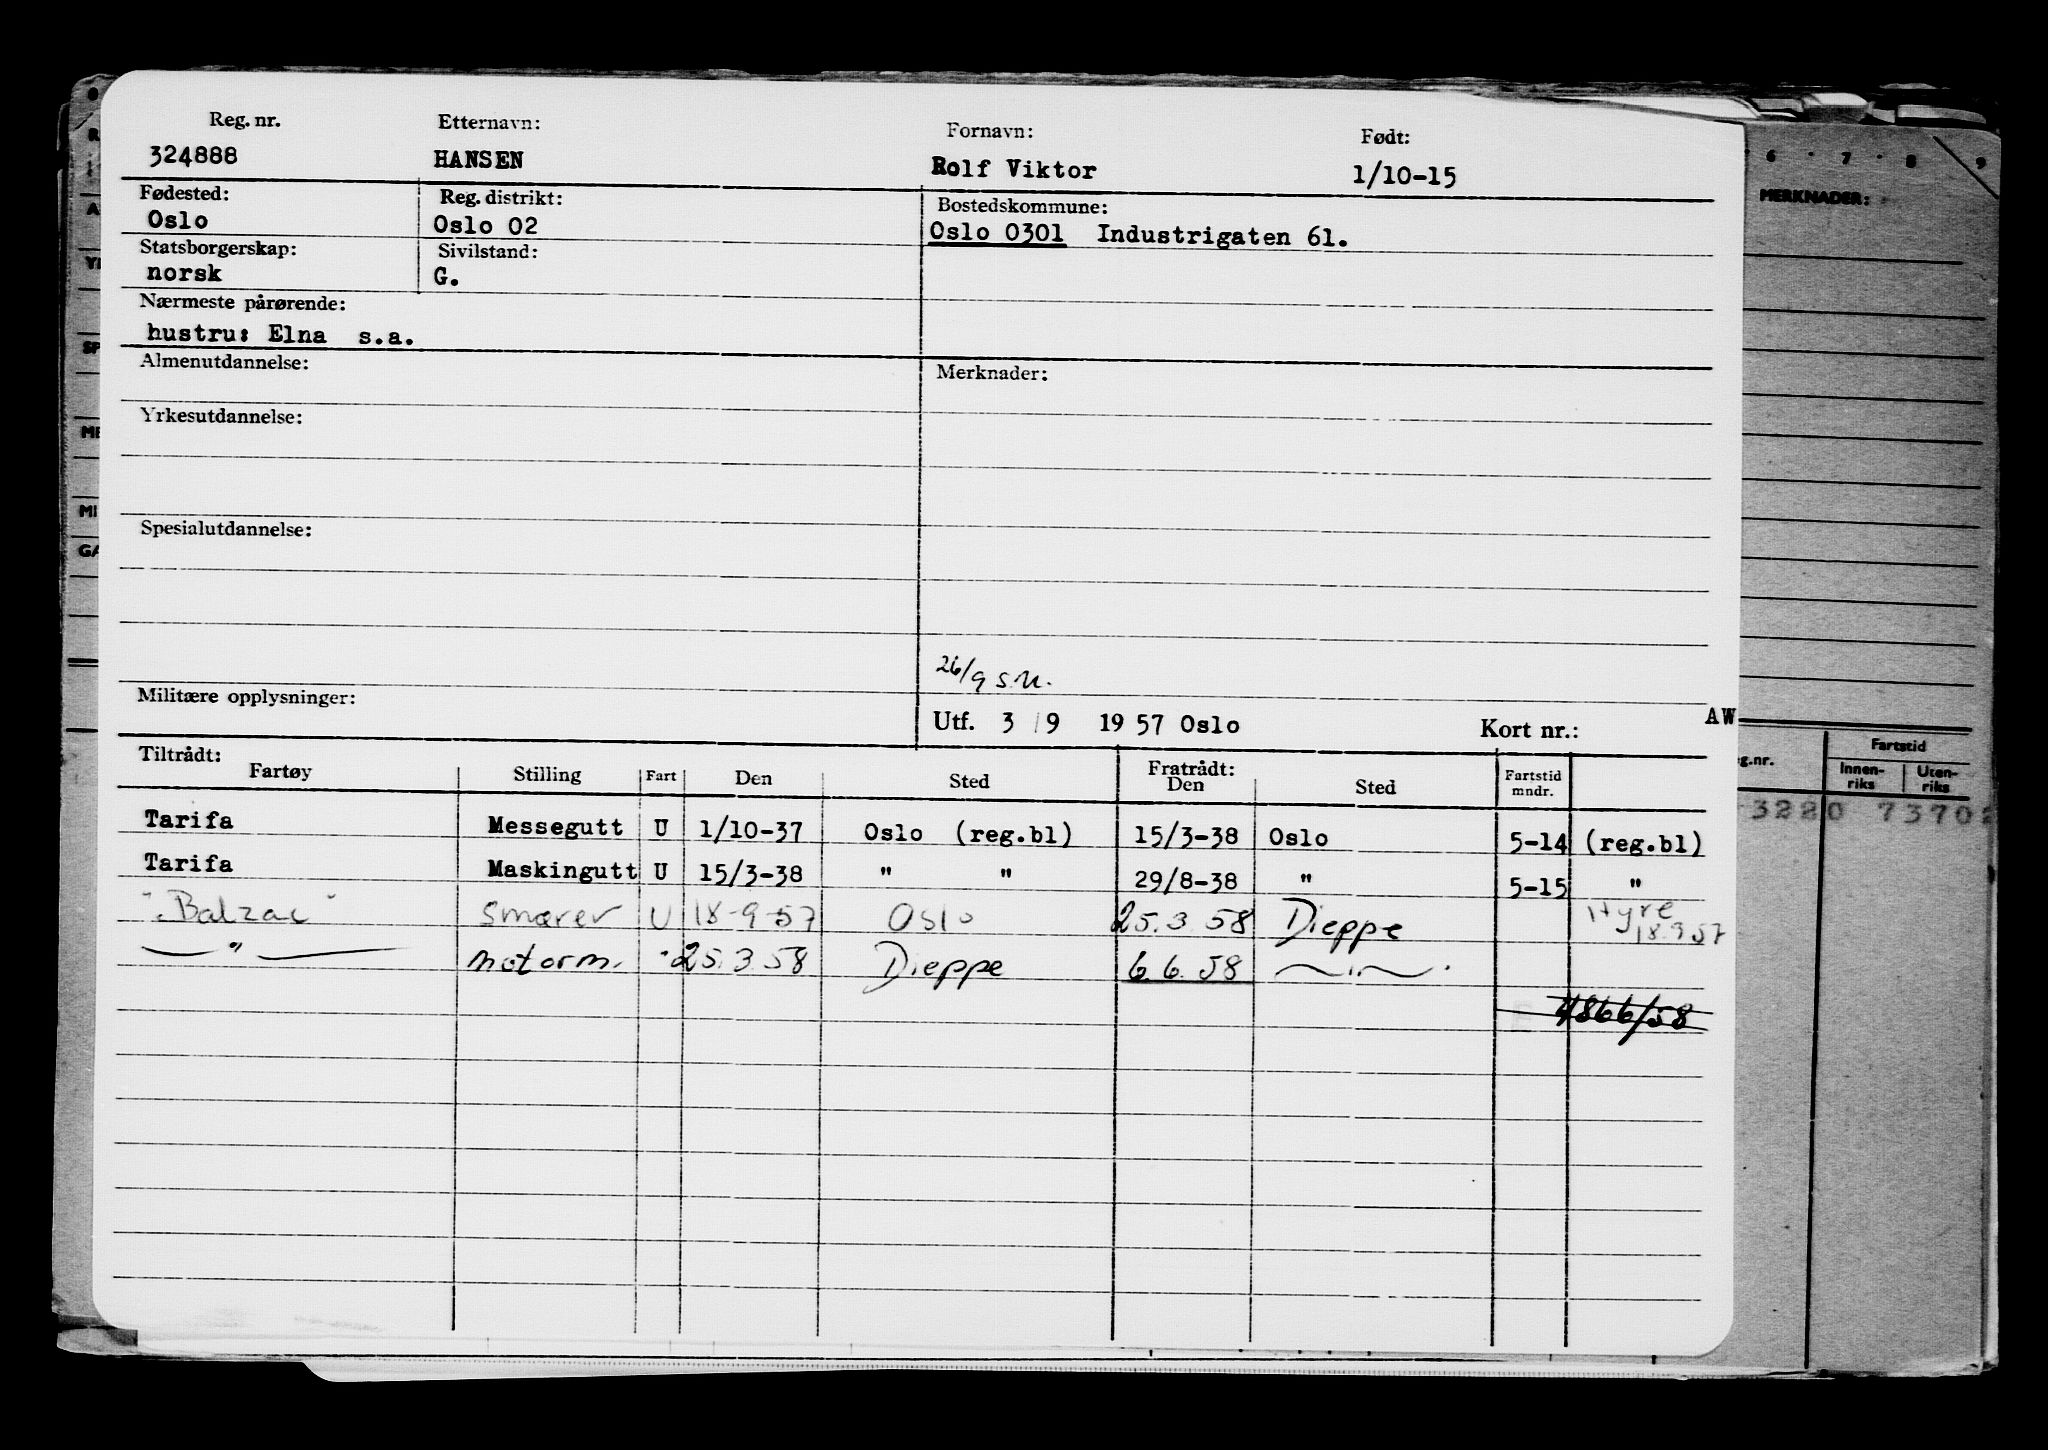 Reg. nr. Etternavn: Fornavn: Født:
324888 HANSEN Rolf Viktor 1/10-15
Fødested: Reg. distrikt: Bostedskommune:
Oslo Oslo 02 Oslo 0301 Industrigaten 61.
Statsborgerskap: Sivilstand:
norsk G.
Nærmeste pårørende:
hustru: Elna s.a.
Almenutdannelse: Merknader:
Yrkesutdannelse:
Spesialutdannelse:
26/9 S.U.
Militære opplysninger: Utf. 3/9 1957 Oslo Kort nr.: AW
Tiltrådt: Fratrådt:
Fartøy Stilling Fart Den Sted Den Sted Fartstid mndr.
Tarifa Messegutt U 1/10-37 Oslo (reg.bl) 15/3-38 Oslo 5-14 (reg.bl)
Tarifa Maskingutt U 15/3-38 " " 29/8-38 " 5-15 "
"Balzac" Smører U 18-9-57 Oslo 25.3.58 Dieppe Hyre 18.9.57
—"— motorm. " 25.3.58 Dieppe 6.6.58 —"—
4866/58
6 · 7 · 8 9
MERKNADER:
g.nr. Fartstid
Innen-riks Uten-riks
3220 7370